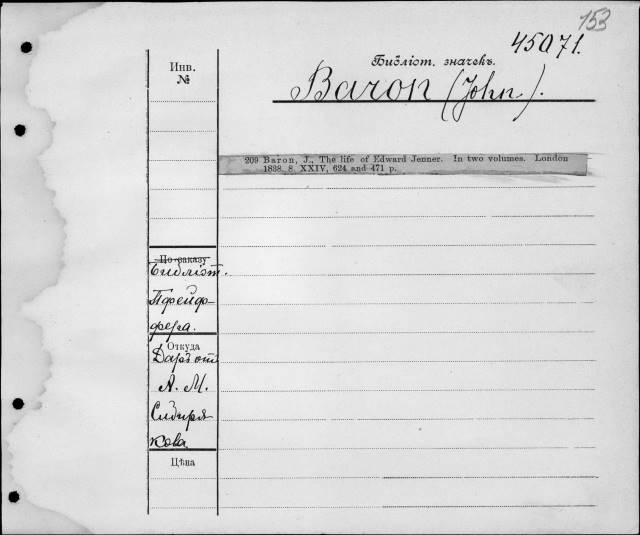 153
45071.
Инв.
№
Библіот. значекъ.
Baron (John).
209 Baron, J., The life of Edward Jenner. In two volumes. London
1838. 8. XXIV, 624 and 471 p.
По заказу
Библіот.
Пфейф-
фера.
Откуда
Даръ от
А. М.
Сибиря
кова
Цѣна